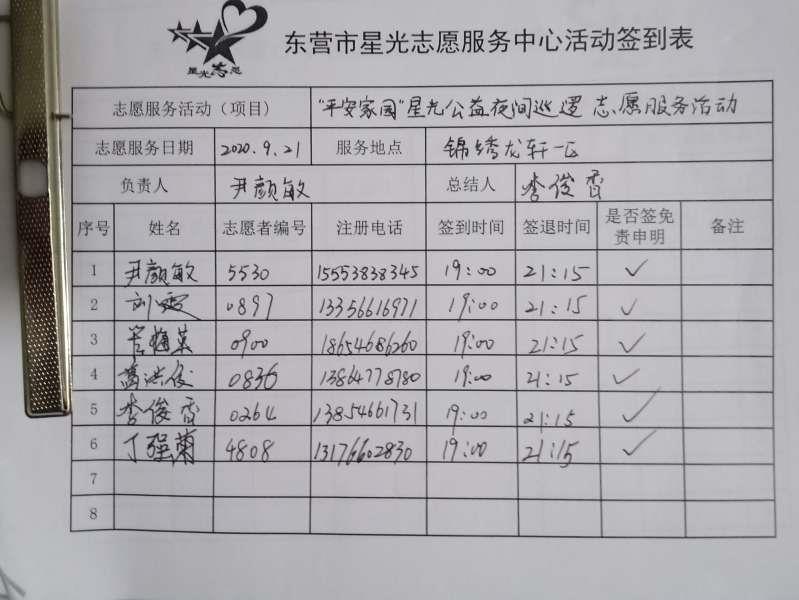 星光志愿
东营市星光志愿服务中心活动签到表
志愿服务活动（项目） "平安家园"星光公益夜间巡逻 志愿服务活动
志愿服务日期 2020.9.21 服务地点 锦绣龙轩一区
负责人 尹颜敏 总结人 李俊香
序号 姓名 志愿者编号 注册电话 签到时间 签退时间 是否签免责申明 备注
1 尹颜敏 5530 15553838345 19:00 21:15 ✓
2 刘霞 0897 13356616971 19:00 21:15 ✓
3 梅英 0900 18654686260 19:00 21:15 ✓
4 洪俊 0836 13864778780 19:00 21:15 ✓
5 李俊香 0264 13854661731 19:00 21:15 ✓
6 丁强菊 4808 13176602830 19:00 21:15 ✓
7
8